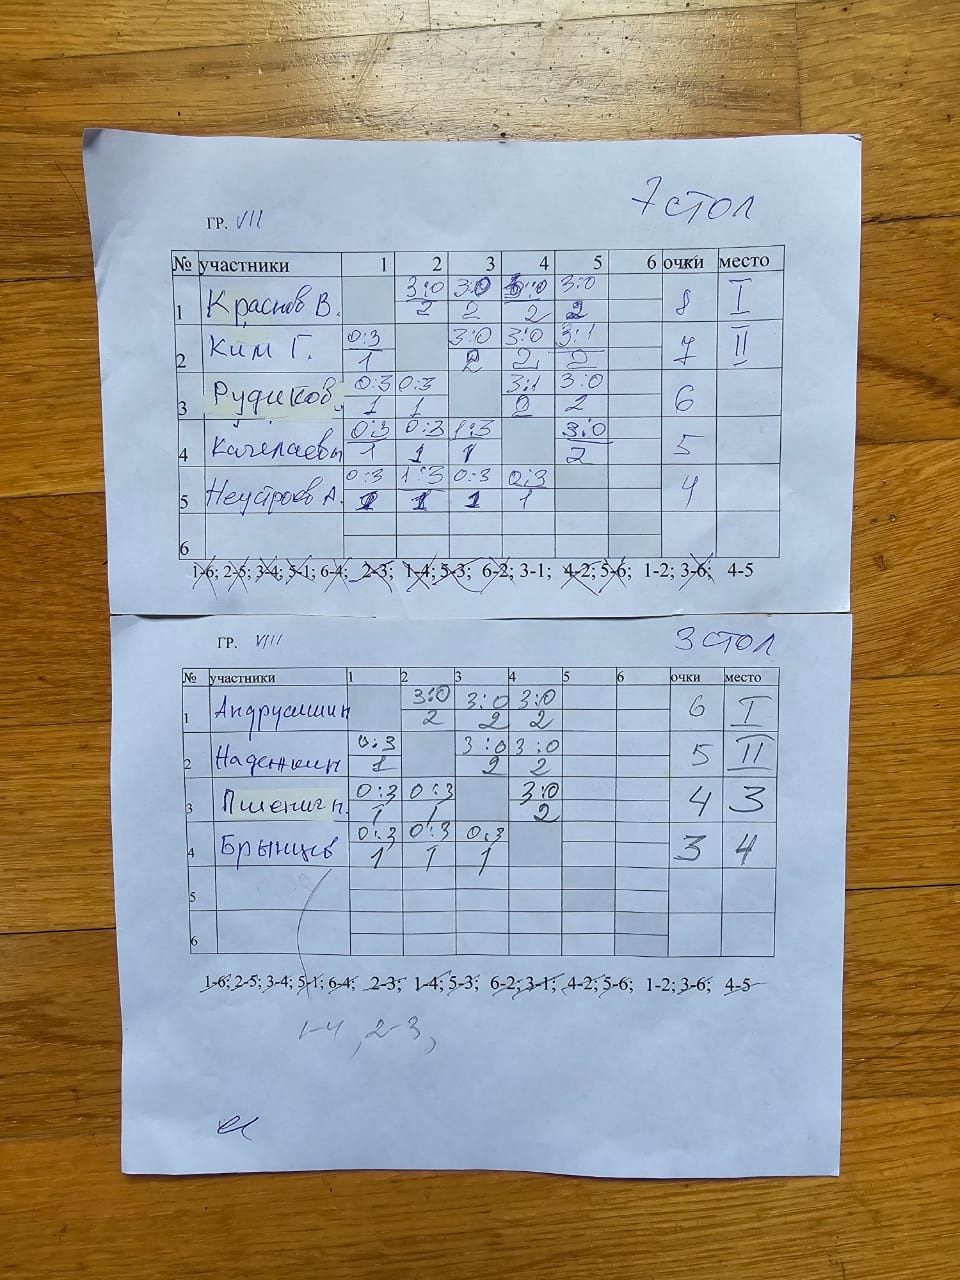 7 стол
ГР. VII
№ участники 1 2 3 4 5 6 очки место
1 Краснов В. 3:0 3:0 3:0 3:0 8 I
2 2 2 2
2 Ким Г. 0:3 3:0 3:0 3:1 7 II
1 2 2 2
3 Рудиков. 0:3 0:3 3:1 3:0 6
1 1 2 2
4 0:3 0:3 1:3 3:0 5
1 1 1 2
5 Неустроев А. 0:3 1:3 0:3 0:3 4
1 1 1 1
6
1-6; 2-5; 3-4; 5-1; 6-4; 2-3; 1-4; 5-3; 6-2; 3-1; 4-2; 5-6; 1-2; 3-6; 4-5
ГР. VIII 3 стол
№ участники 1 2 3 4 5 6 очки место
1 Андрусишин 3:0 3:0 3:0 6 I
2 2 2
2 Наденкин 0:3 3:0 3:0 5 II
1 2 2
3 Пшеничн. 0:3 0:3 3:0 4 3
1 1 2
4 Брынцев 0:3 0:3 0:3 3 4
1 1 1
5
6
1-6; 2-5; 3-4; 5-1; 6-4; 2-3; 1-4; 5-3; 6-2; 3-1; 4-2; 5-6; 1-2; 3-6; 4-5
1-4, 2-3,